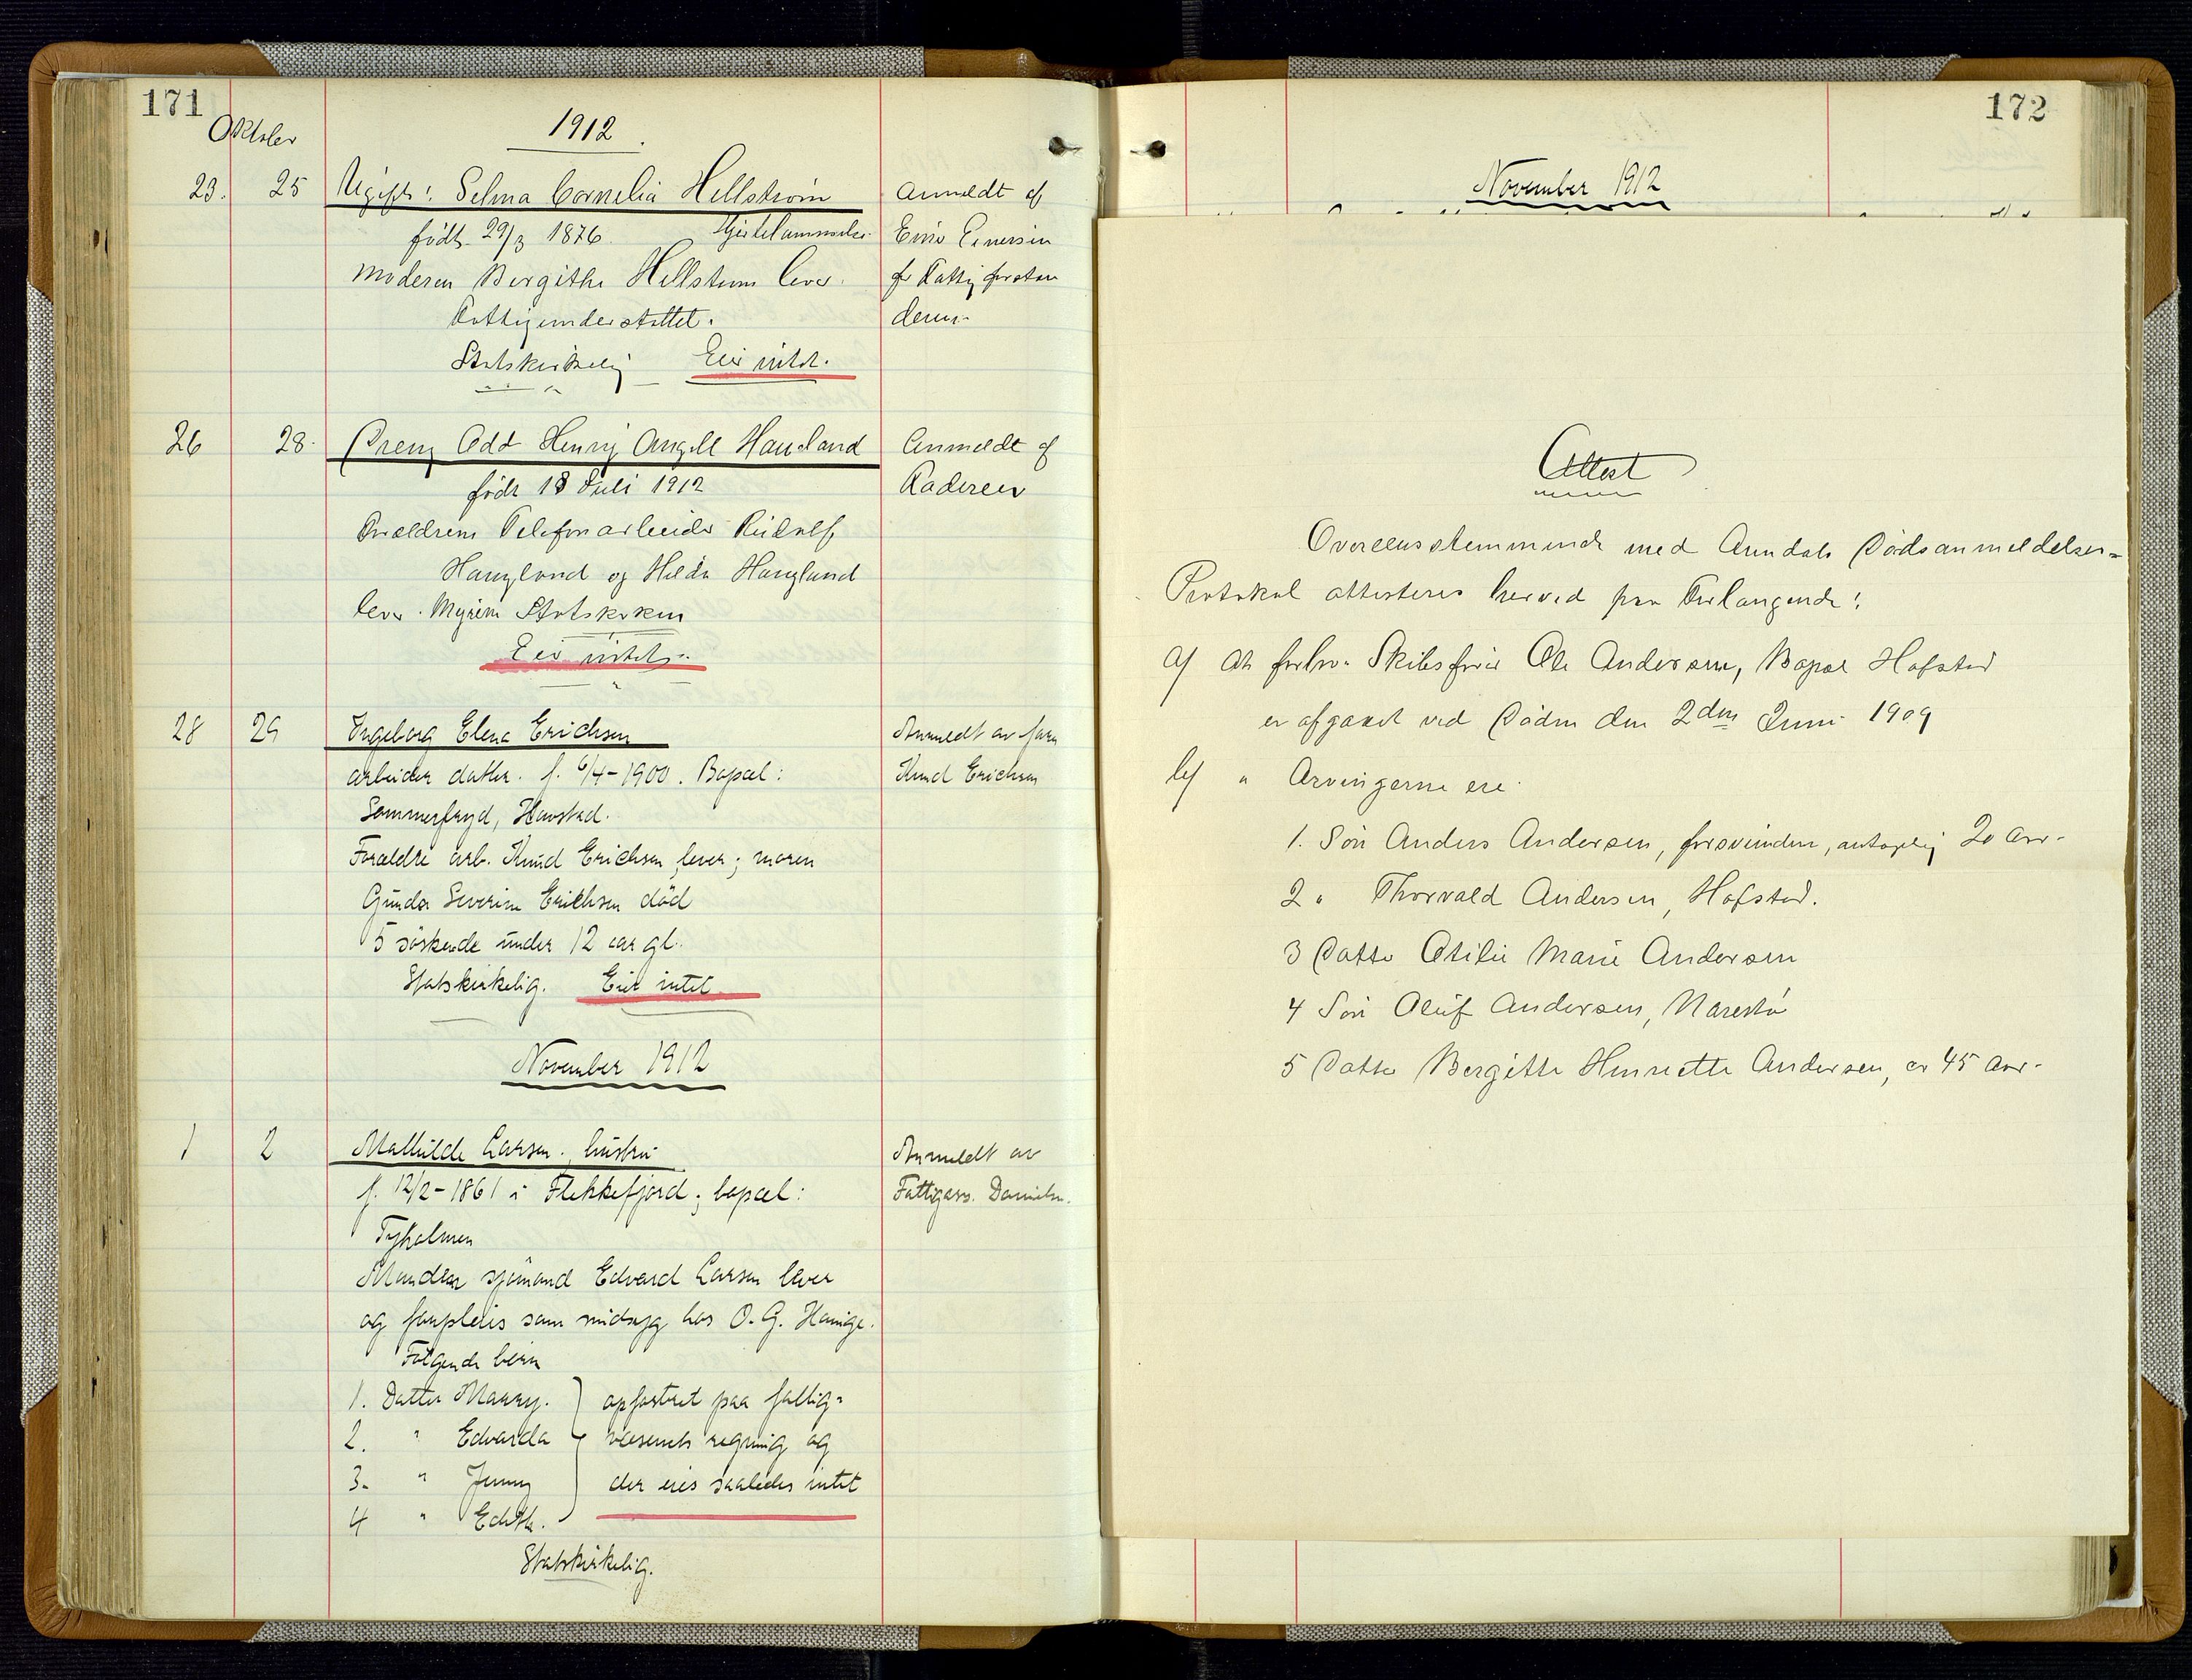 171
Oktober
1912
23. 25 Ugift: Selma Cornelia Hellstrøm Anmeldt af
født 29/3 1876. Hjertelammelse Einersen
Moderen Bergithe Hellstrøm lever. for Fattigforstan
Fattigunderstøttet. deren
Statskirkelig Eier intet.
26 28. Dreng Odd Henry Angell Haugland Anmeldt af
født 18 Juli 1912 Faderen
Forældrene Telefonarbeider Rudolf
Haugland og Hilda Haugland
lever. Myrene Statskirken
Eier intet.
28 29 Ingeborg Elena Erichsen Anmeldt av faren
arbeider datter. f. 6/4-1900. Bopæl: Knud Erichsen
Sommerfryd, Havstad.
Forældre arb. Knud Erichsen, lever; moren
Gunda Severine Erichsen død
5 søskende under 12 aar gl.
Statskirkelig. Eier intet
November 1912
1 2 Mathilde Larsen, hustru Anmeldt av
f. 12/2-1861 i Flekkefjord; bopæl: Fattigfors. Danielsen.
Tyholmen
Manden sjømand Edvard Larsen lever
og forpleies som sindsyg hos O. G. Hauige.
Følgende børn
1. Datter Maany. } opfostret paa fattig=
2. " Edvarda væsenets regning og
3. " Jenny der eies saaledes intet
4 " Edith.
Statskirkelig.
172
November 1912
Attest
Overensstemmende med Arendals Dødsanmeldelses=
Protokol attesteres herved paa Forlangende:
a/ At forhv. Skibsfører Ole Andersen, Bopæl Hofstad
er afgaaet ved Døden den 2den Juni 1909
b/ " Arvingerne ere
1. Søn Anders Andersen, forsvunden, antagelig 20 Aar.
2 " Thorvald Andersen, Hofstad.
3 Datter Otilie Marie Andersen
4 Søn Oluf Andersen, Narestø
5 Datter Bergitte Henriette Andersen, er 45 Aar.